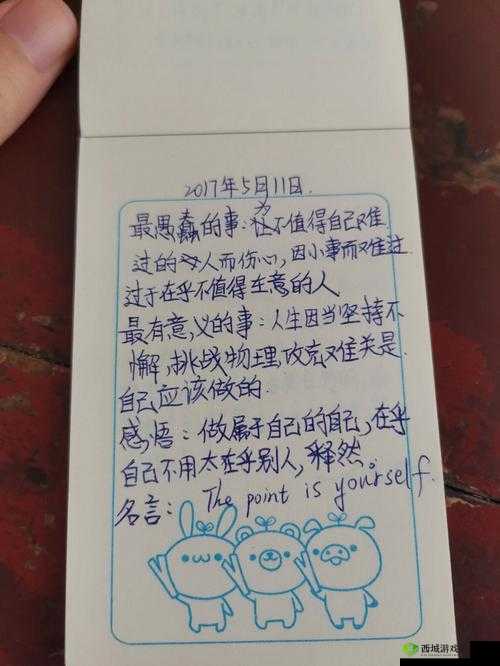 2017年5月11日.
最愚蠢的事:为不值得自己难
过的人而伤心,因小事而难过
过于在乎不值得在意的人
最有意义的事:人生因当坚持不
懈,挑战物理,攻克难关是
自己应该做的.
感悟:做属于自己的自己,在乎
自己不用太在乎别人,释然。
名言: The point is yourself.
西城游戏